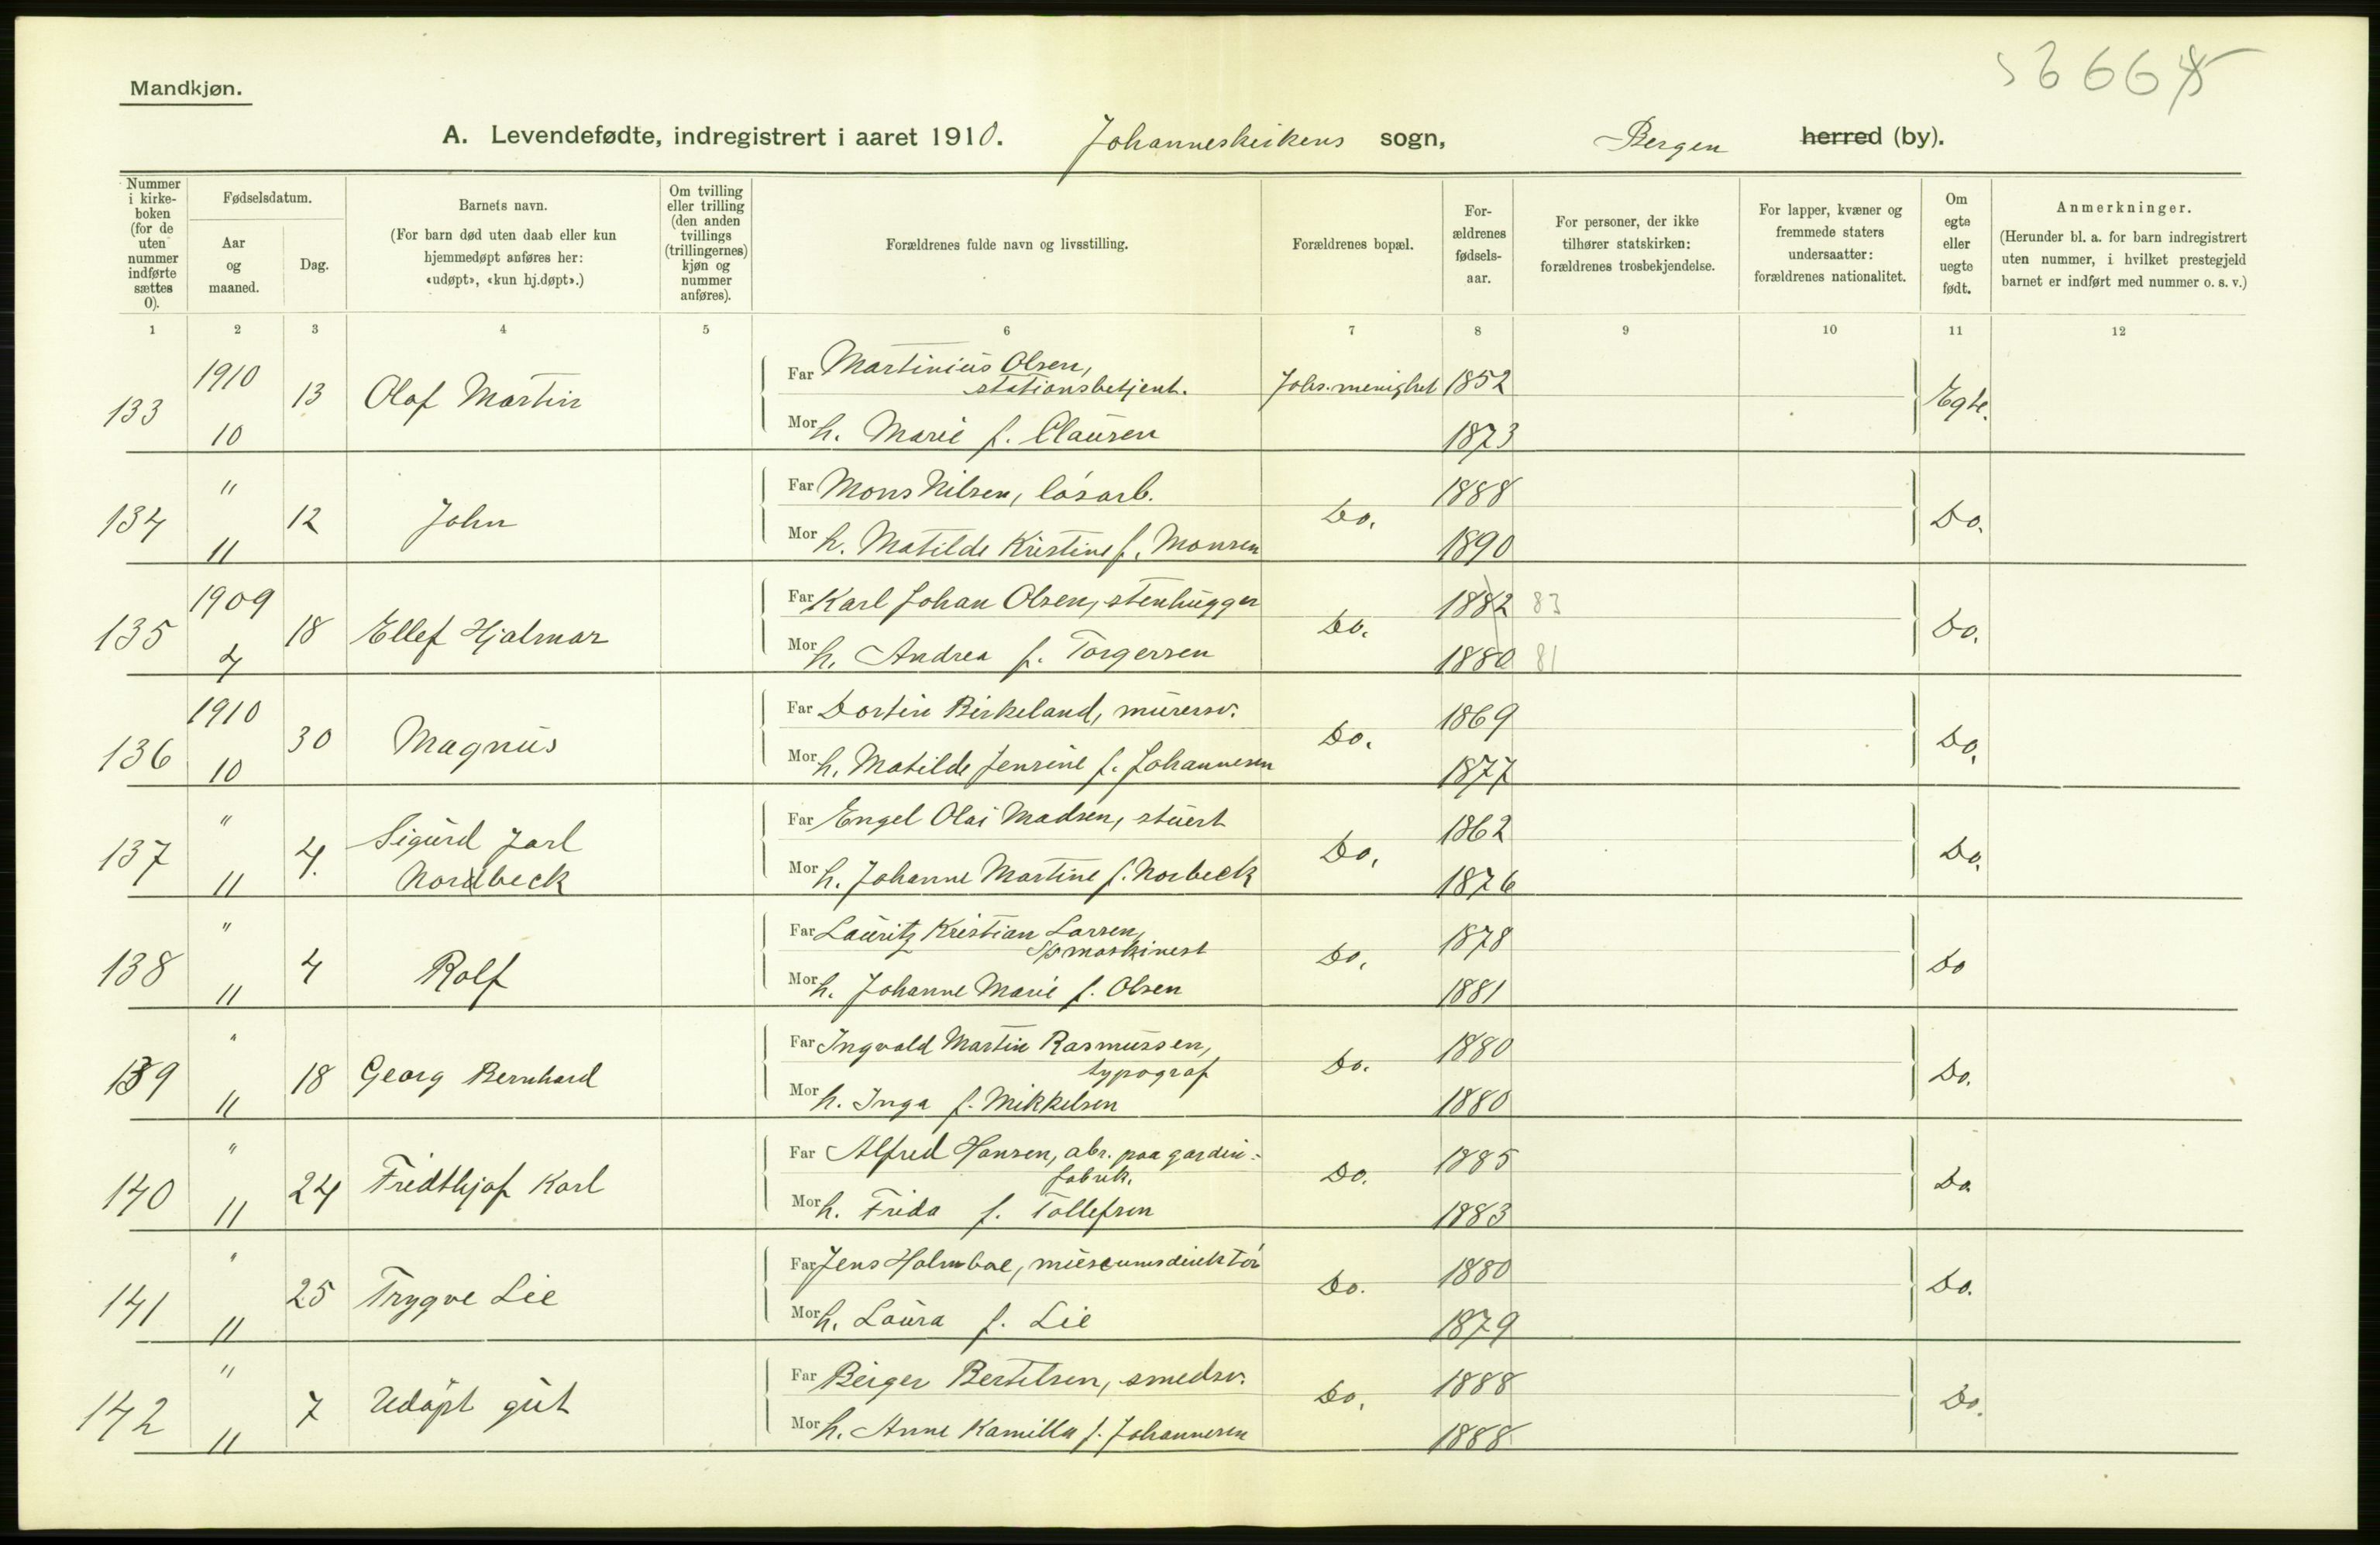 Mandkjøn.
A. Levendefødte, indregistrert i aaret 1910. Johanneskirkens sogn, Bergen herred (by).
Nummer i kirkeboken (for de uten nummer indførte sættes 0).
Fødselsdatum.
Aar og maaned.
Dag.
Barnets navn.
(For barn død uten daab eller kun hjemmedøpt anføres her: «udøpt», «kun hj.døpt».)
Om tvilling eller trilling (den anden tvillings (trillingernes) kjøn og nummer anføres).
Forældrenes fulde navn og livsstilling.
Forældrenes bopæl.
Forældrenes fødselsaar.
For personer, der ikke tilhører statskirken: forældrenes trosbekjendelse.
For lapper, kvæner og fremmede staters undersaatter: forældrenes nationalitet.
Om egte eller uegte født.
Anmerkninger.
(Herunder bl. a. for barn indregistrert uten nummer, i hvilket prestegjeld barnet er indført med nummer o. s. v.)
1 2 3 4 5 6 7 8 9 10 11 12
133 1910 10 13 Olaf Martin
Far Martinius Olsen, stationsbetjent. Johs. menighet 1852 Egte.
Mor h. Marie f. Clausen 1873
134 " 11 12 John
Far Mons Nilsen, løsarb. Do. 1888 Do.
Mor h. Matilde Kristine f. Monsen 1890
135 1909 4 18 Ellef Hjalmar
Far Karl Johan Olsen, stenhugger Do. 1882 83 Do.
Mor h. Andrea f. Torgersen 1880 81
136 1910 10 30 Magnus
Far Dortin Birkeland, murersv. Do. 1869 Do.
Mor h. Matilde Jensine f. Johannesen 1877
137 " 11 4. Sigurd Jarl Nordbeck
Far Engel Olai Madsen, stuert Do. 1862 Do.
Mor h. Johanne Martine f. Norbeck 1876
138 " 11 4 Rolf
Far Lauritz Kristian Larsen, S/s maskinest Do. 1878 Do
Mor h. Johanne Marie f. Olsen 1881
139 " 11 18 Georg Bernhard
Far Ingvald Martin Rasmussen, typograf Do. 1880 Do.
Mor h. Inga f. Mikkelsen 1880
140 " 11 24 Fridthjof Karl
Far Alfred Hansen, abr. paa gardinfabrik. Do. 1885 Do.
Mor h. Frida f. Tollefsen 1883
141 " 11 25 Trygve Lie
Far Jens Holmboe, museumsdirektør Do. 1880 Do.
Mor h. Laura f. Lie 1879
142 " 11 7 Udøpt gut
Far Birger Bertelsen, smedsv. Do. 1888 Do.
Mor h. Anne Kamilla f. Johannesen 1888